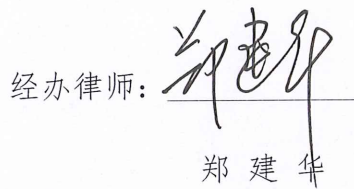 经办律师：郑建华
郑建华